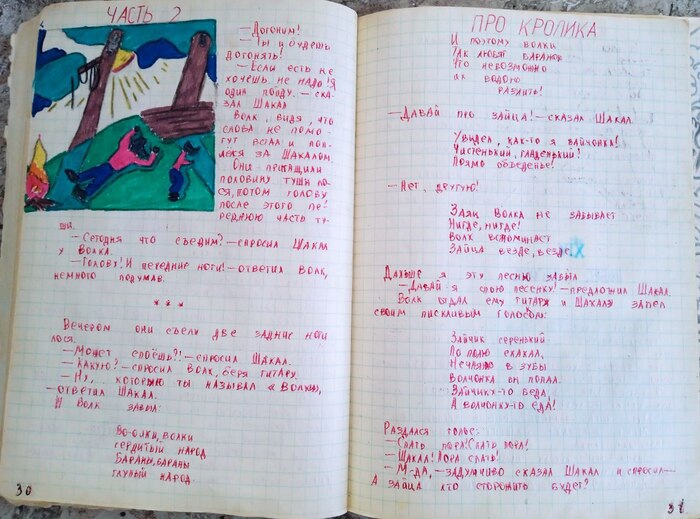 ЧАСТЬ 2
— Догоним!
Ты и будешь
догонять!
— Если есть не
хочешь не надо! Я
один пойду. — ска-
зал Шакал
Волк, видя, что
слова не помо-
гут встал и поп-
лёлся за Шакалом.
Они притащили
половину туши ло-
ся, потом голову
после этого пе-
реднюю часть ту-
ши.
— Сегодня что съедим? — спросил Шакал
у Волка.
— Голову! И передние ноги! — ответил Волк,
немного подумав.
* * *
Вечером они съели две задние ноги
лося.
— Может споёшь?! — спросил Шакал.
— Какую? — спросил Волк, беря гитару.
— Ну, которую ты называл «Волки»,
— ответил Шакал.
И Волк завыл:
Во-олки, волки
сердитый народ
Бараны, бараны
глупый народ.
30
ПРО КРОЛИКА
И поэтому волки
Так любят баранов
Что невозможно
их водою
разлить!
— Давай про зайца! — сказал Шакал.
Увидел, как-то я зайчонка!
Чистенький, гладенький!
Прямо объеденье!
— Нет, другую!
Заяц Волка не забывает
Нигде, нигде!
Волк вспоминает
Зайца везде, везде.
Дальше я эту песню забыл
— Давай я спою песенку! — предложил Шакал.
Волк отдал ему гитару и Шакал запел
своим писклявым голосом:
Зайчик серенький
По полю скакал,
Нечаяно в зубы
Волчонка он попал.
Зайчику-то беда,
А волчонку-то еда!
Раздался голос:
— Спать пора! Спать пора!
— Шакал! Пора спать!
— М-да, — задумчиво сказал Шакал и спросил —
А зайца кто сторожить будет?
31